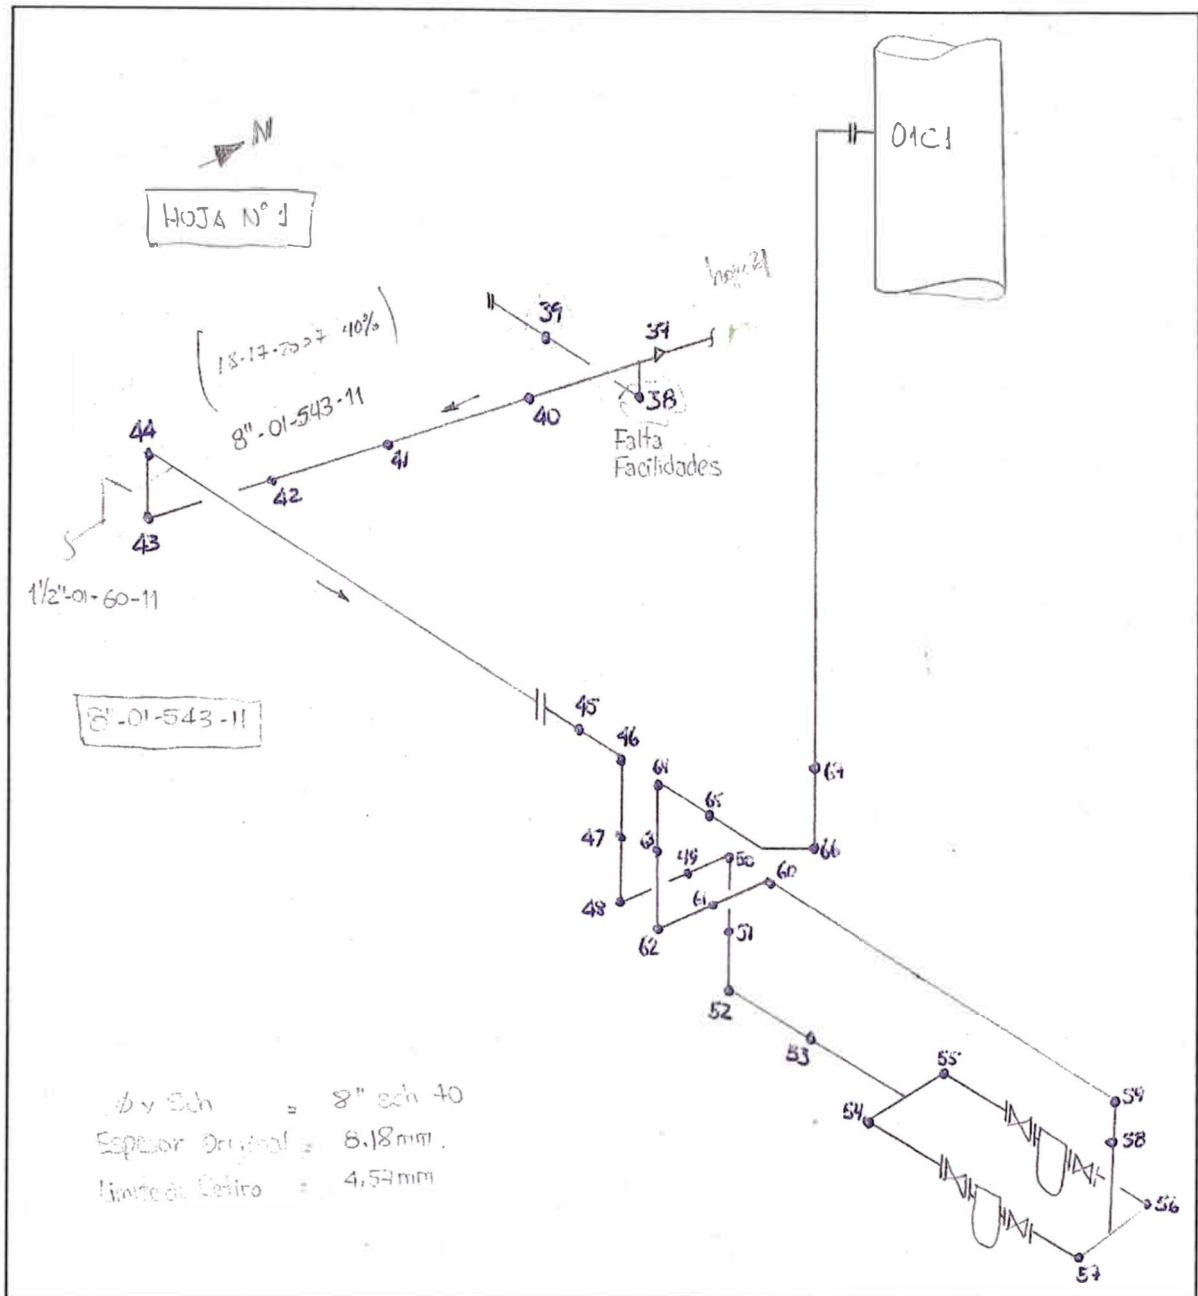 N
HOJA N° 1
01C1
39
37
40
38
Falta
Facilidades
8"-01-543-11
41
44
42
43
1½"-01-60-11
8"-01-543-11
45
46
64
65
67
47
63
66
49
50
60
48
61
62
51
52
53
55
59
54
58
56
57
Ø y Sch = 8" sch 40
Espesor Original = 8.18mm.
Limite de Retiro = 4.57mm